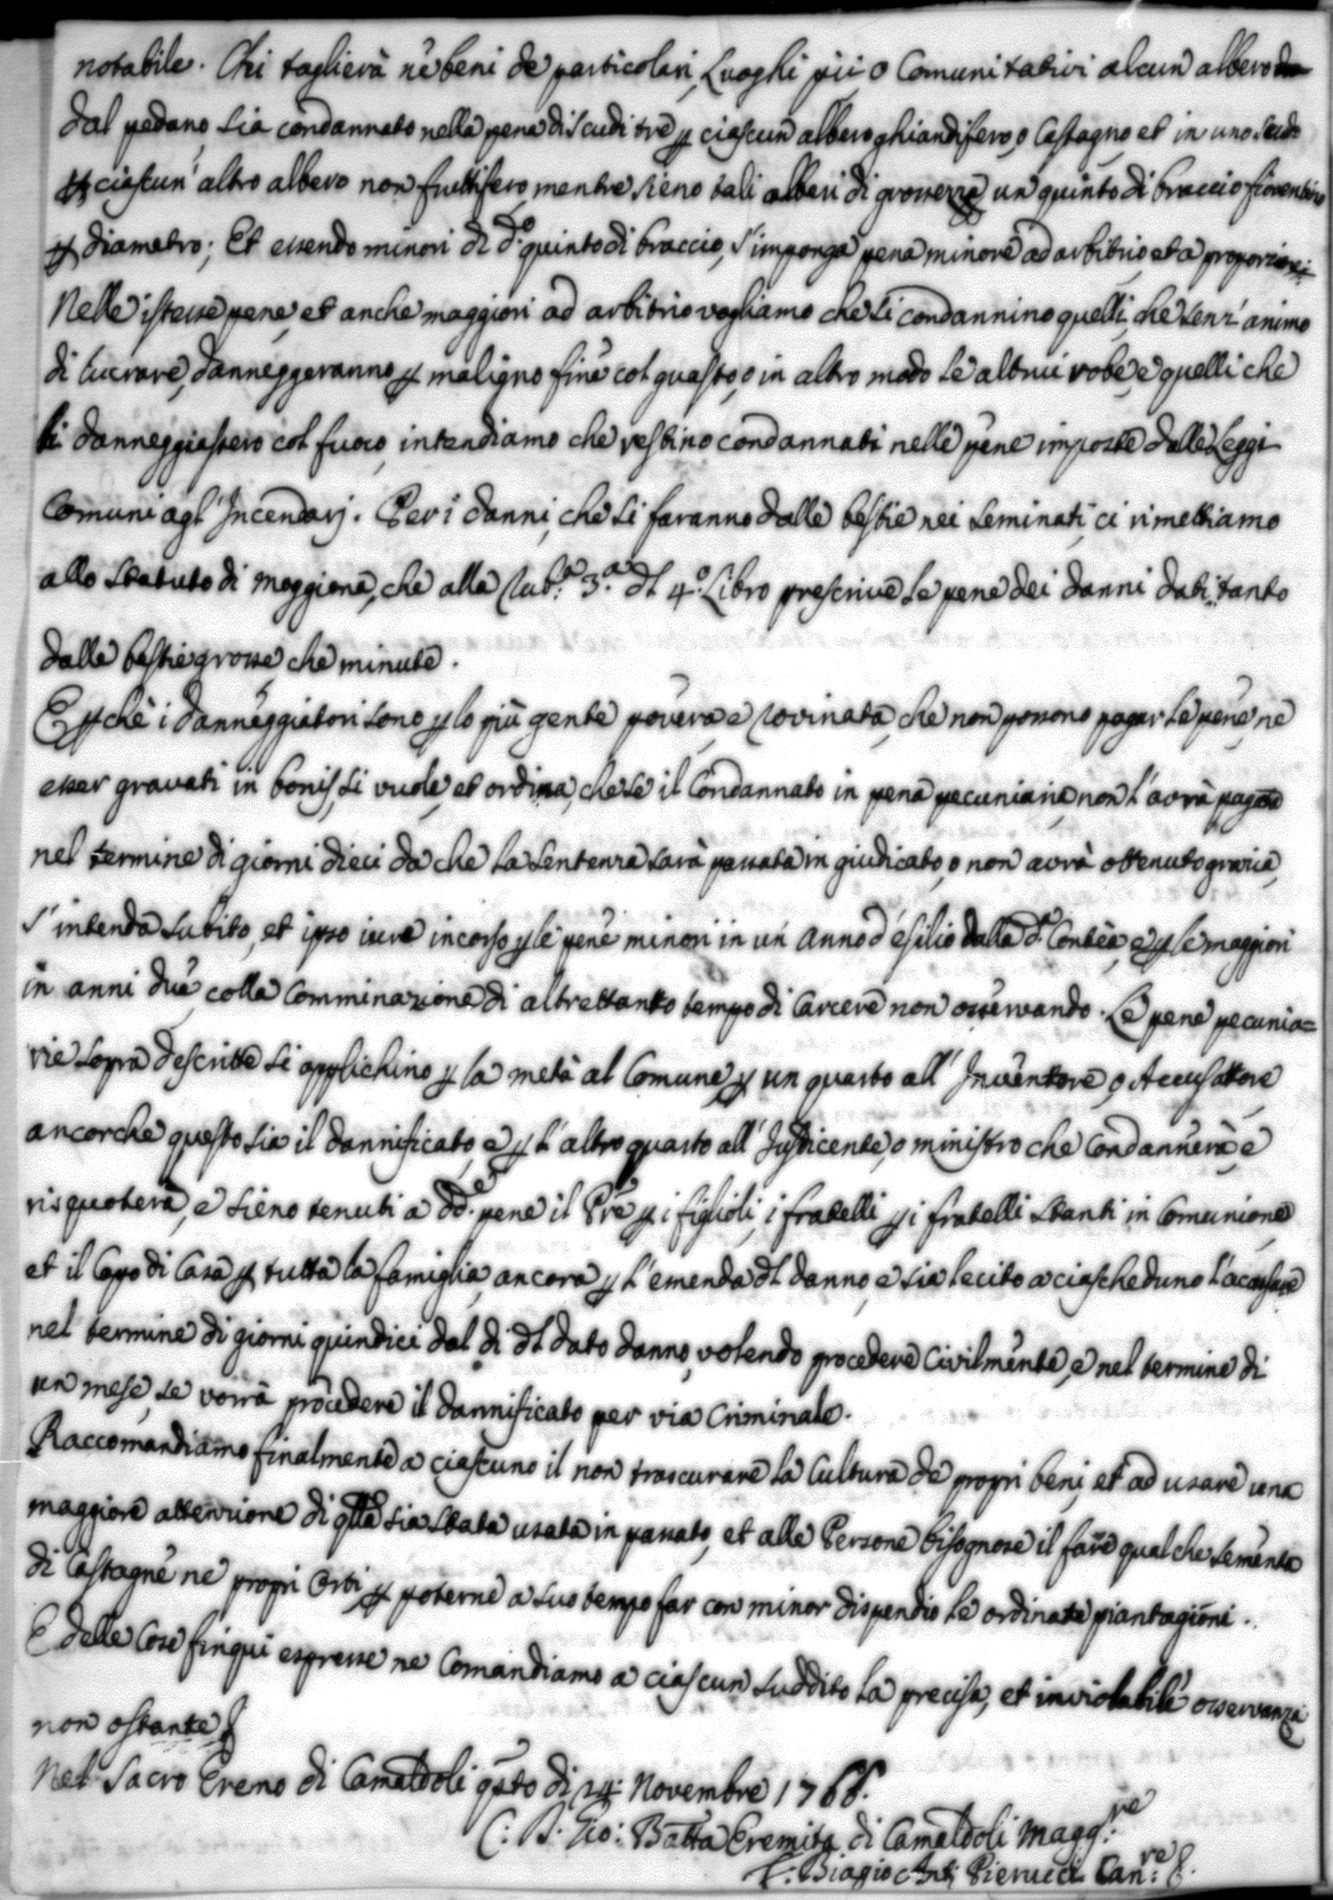 notabile. Chi taglierà ne beni de particolari, Luoghi pii, o Comunitativi alcun albero
dal pedano, sia condannato nella pena di scudi tre p ciascun albero ghiandifero, o Castagno, et in uno scudo
p ciascun' altro albero non fruttifero, mentre sieno tali alberi di grossezza un quinto di braccio fiorentino
p diametro; Et essendo minori di d.o quinto di braccio, s'imponga pena minore ad arbitrio, et a proporzione.
Nelle istesse pene, et anche maggiori ad arbitrio vogliamo che si condannino quelli, che senz' animo
di lucrare, danneggeranno p maligno fine col guasto, o in altro modo le altrui robe, e quelli che
li danneggiassero col fuoco, intendiamo che restino condannati nelle pene imposte dalle Leggi
Comuni agl' Incendarj. Per i danni, che si faranno dalle bestie nei seminati, ci rimettiamo
allo statuto di Moggiona, che alla Rub.a 3.a dl 4.o Libro prescrive le pene dei danni dati, tanto
dalle bestie grosse, che minute.
E pchè i danneggiatori sono p lo più gente povera, e rovinata, che non possono pagar le pene, ne
esser gravati in bonis, si vuole, et ordina, che se il Condannato in pena pecuniaria, non l'avrà pagata
nel termine di giorni dieci da che la sentenza sarà passata in giudicato, o non avrà ottenuto grazia,
s'intenda subito, et ipso iure incorso p le pene minori in un' anno d'esilio dalla d.a Contea, e p le maggiori
in anni due colla Comminazione di altrettanto tempo di Carcere non osservando. Le pene pecunia=
rie sopra descritte si applichino p la metà al Comune, p un quarto all' Inventore, o Accusatore
ancorche questo sia il dannificato, e p l'altro quarto all' Iusdicente, o ministro che Condannerà, e
risquoterà, e sieno tenuti a dd.e pene il Pre p i figlioli, i fratelli p i fratelli stanti in Comunione
et il Capo di Casa p tutta la famiglia, ancora p l'emenda dl danno, e sia lecito a ciascheduno l'accusare
nel termine di giorni quindici dal di dl dato danno, volendo procedere Civilmente, e nel termine di
un mese, se vorrà procedere il dannificato per via Criminale.
Raccomandiamo finalmente a ciascuno il non trascurare la Cultura de propri beni, et ad usare una
maggiore attenzione di qlla sia stata usata in passato, et alle Persone bisognose il fare qualche semente
di Castagne ne propri Orti, p poterne a suo tempo far con minor dispendio le ordinate piantagioni.
E delle Cose fin qui espresse ne Comandiamo a ciascun suddito la precisa, et inviolabile osservanza
non ostante
Nel Sacro Eremo di Camaldoli qsto di 24: Novembre 1766.
Gio: Batta Eremita di Camaldoli Magg.re
Biagio Ant. Pierucci Can.re